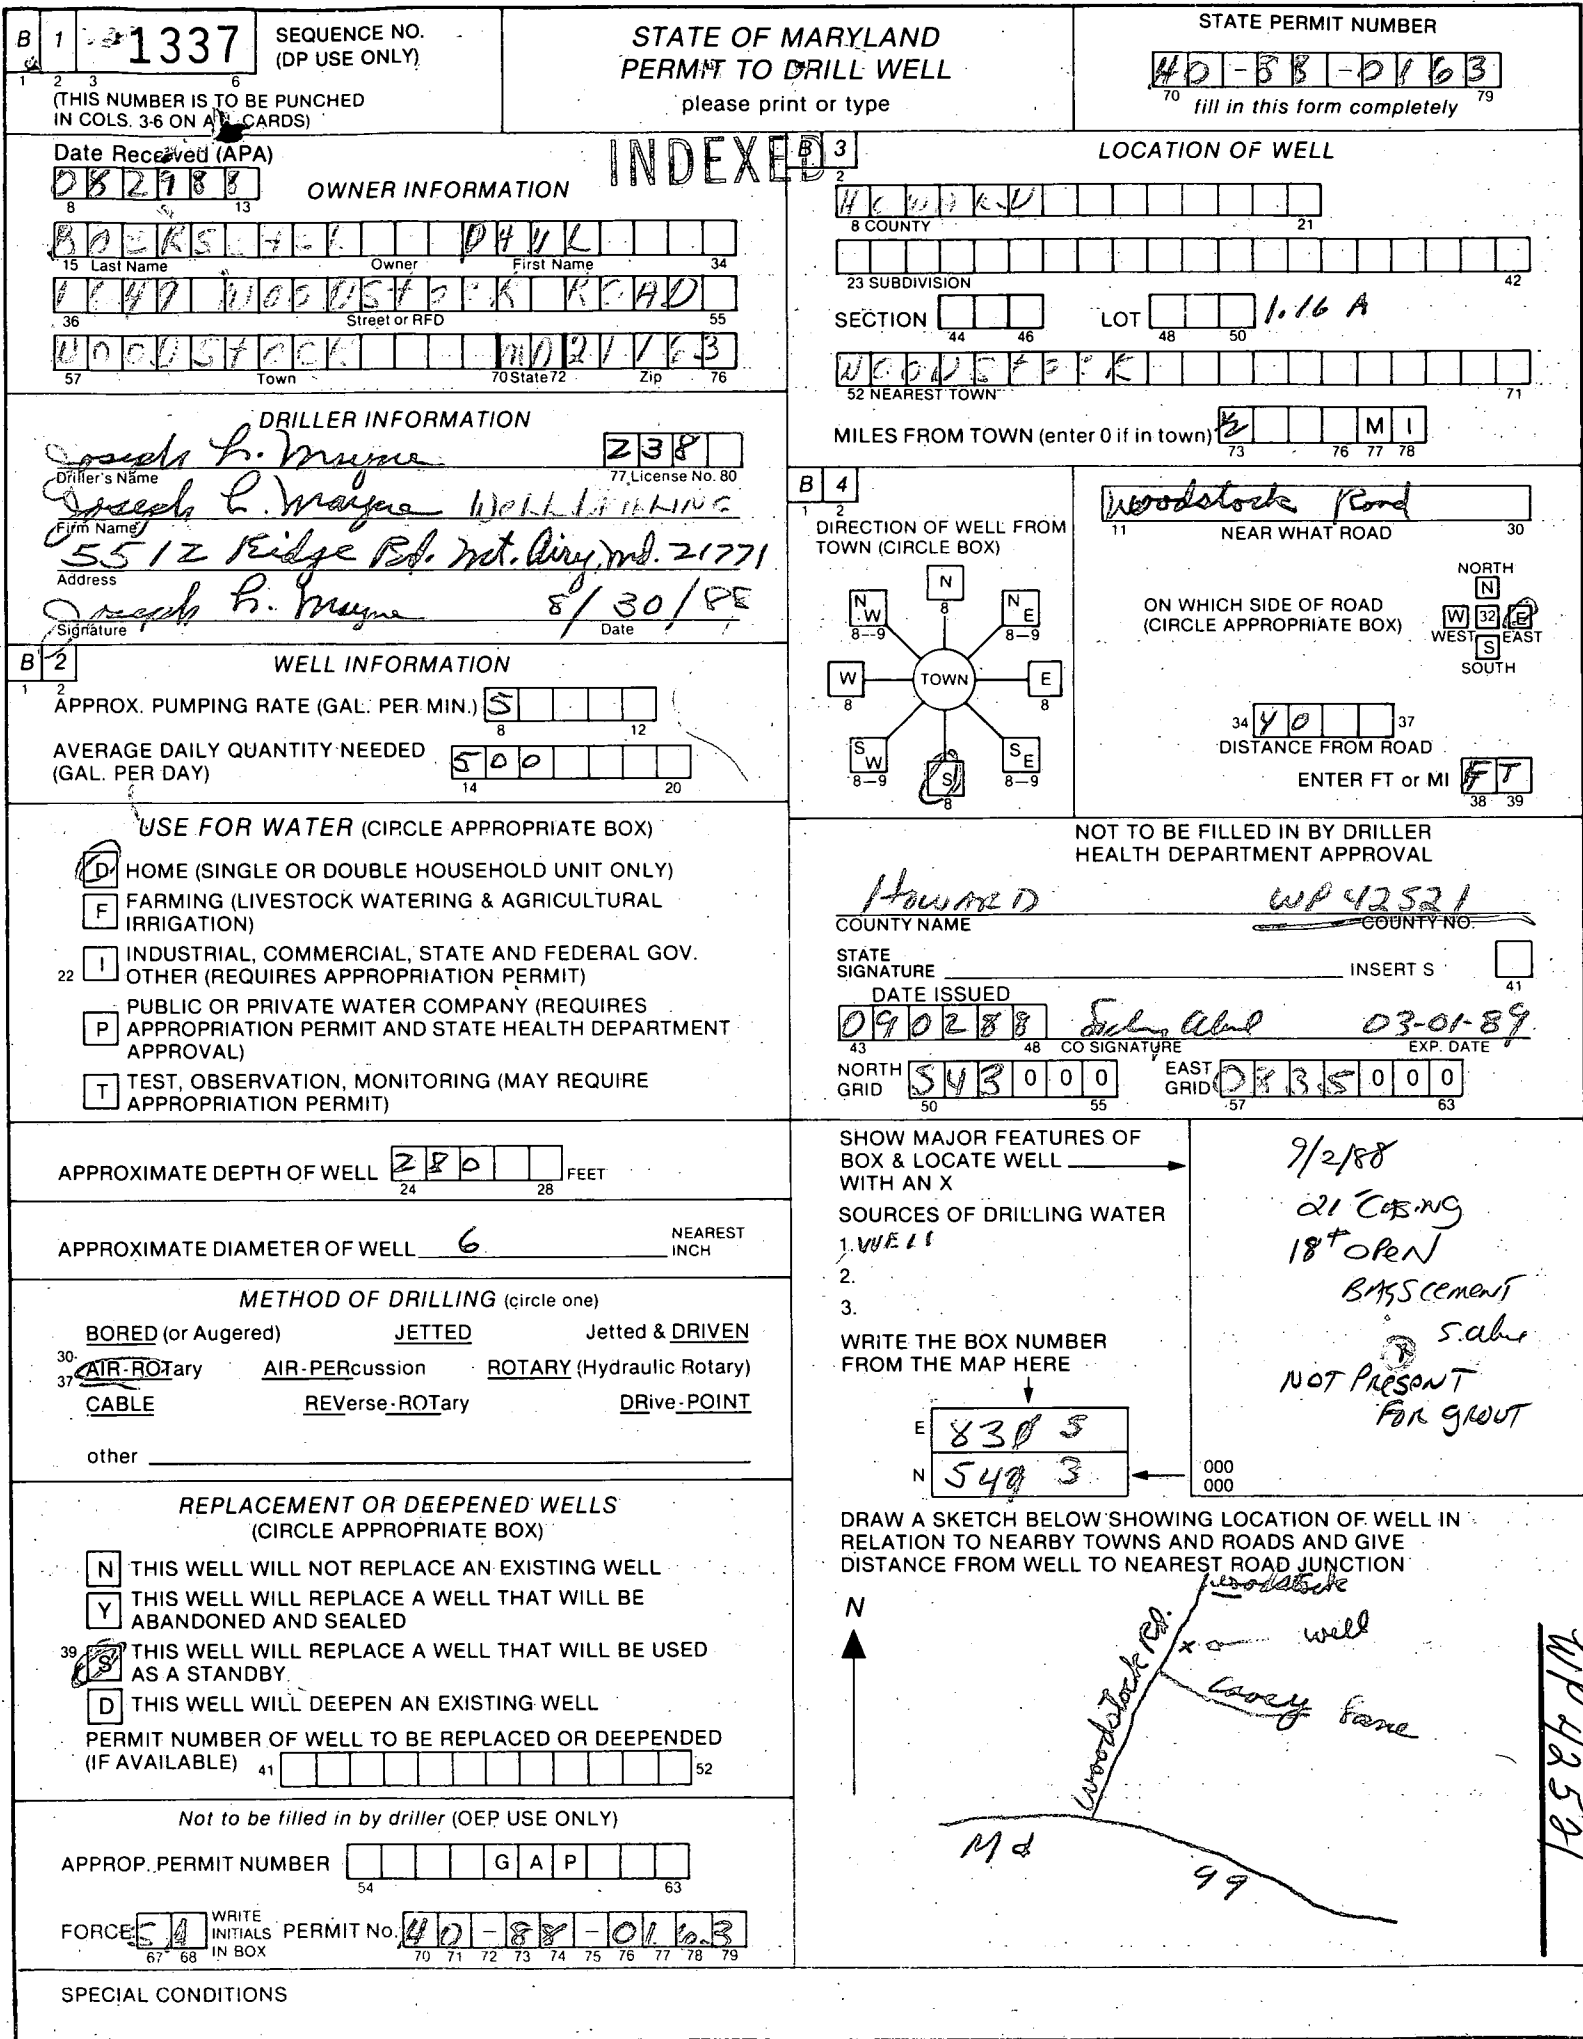 B 1 1337 SEQUENCE NO.
(DP USE ONLY)
1 2 3 6
(THIS NUMBER IS TO BE PUNCHED
IN COLS. 3-6 ON ALL CARDS)
STATE OF MARYLAND
PERMIT TO DRILL WELL
please print or type
STATE PERMIT NUMBER
HO-88-0163
70 79
fill in this form completely
INDEXED
Date Received (APA)
082988
8 13
OWNER INFORMATION
PAUL
15 Last Name Owner First Name 34
WOODSTOCK ROAD
36 Street or RFD 55
WOODSTOCK MD 21163
57 Town 70 State 72 Zip 76
DRILLER INFORMATION
Joseph L. Mayne 238
Driller's Name 77 License No. 80
Joseph L. Mayne WELL DRILLING
Firm Name
5512 Ridge Rd. Mt. Airy, Md. 21771
Address
Joseph L. Mayne 8/30/88
Signature Date
B 2 WELL INFORMATION
1 2
APPROX. PUMPING RATE (GAL. PER MIN.) 5
8 12
AVERAGE DAILY QUANTITY NEEDED
(GAL. PER DAY) 500
14 20
USE FOR WATER (CIRCLE APPROPRIATE BOX)
D HOME (SINGLE OR DOUBLE HOUSEHOLD UNIT ONLY)
F FARMING (LIVESTOCK WATERING & AGRICULTURAL
IRRIGATION)
22 I INDUSTRIAL, COMMERCIAL, STATE AND FEDERAL GOV.
OTHER (REQUIRES APPROPRIATION PERMIT)
P PUBLIC OR PRIVATE WATER COMPANY (REQUIRES
APPROPRIATION PERMIT AND STATE HEALTH DEPARTMENT
APPROVAL)
T TEST, OBSERVATION, MONITORING (MAY REQUIRE
APPROPRIATION PERMIT)
APPROXIMATE DEPTH OF WELL 280 FEET
24 28
APPROXIMATE DIAMETER OF WELL 6 NEAREST
INCH
METHOD OF DRILLING (circle one)
BORED (or Augered) JETTED Jetted & DRIVEN
30-37 AIR-ROTary AIR-PERcussion ROTARY (Hydraulic Rotary)
CABLE REVerse-ROTary DRive-POINT
other
REPLACEMENT OR DEEPENED WELLS
(CIRCLE APPROPRIATE BOX)
N THIS WELL WILL NOT REPLACE AN EXISTING WELL
Y THIS WELL WILL REPLACE A WELL THAT WILL BE
ABANDONED AND SEALED
39 S THIS WELL WILL REPLACE A WELL THAT WILL BE USED
AS A STANDBY
D THIS WELL WILL DEEPEN AN EXISTING WELL
PERMIT NUMBER OF WELL TO BE REPLACED OR DEEPENED
(IF AVAILABLE) 41 52
Not to be filled in by driller (OEP USE ONLY)
APPROP. PERMIT NUMBER G A P
54 63
FORCE SA WRITE INITIALS IN BOX PERMIT No. HO-88-0163
67 68 70 71 72 73 74 75 76 77 78 79
SPECIAL CONDITIONS
B 3 LOCATION OF WELL
2
HOWARD
8 COUNTY 21
23 SUBDIVISION 42
SECTION LOT 1.16 A
44 46 48 50
WOODSTOCK
52 NEAREST TOWN 71
MILES FROM TOWN (enter 0 if in town) ½ M I
73 76 77 78
B 4
1 2
DIRECTION OF WELL FROM
TOWN (CIRCLE BOX)
N
8
N W
8-9
N E
8-9
W
8
TOWN
E
8
S W
8-9
S
8
S E
8-9
Woodstock Road
11 NEAR WHAT ROAD 30
ON WHICH SIDE OF ROAD
(CIRCLE APPROPRIATE BOX)
NORTH
N
W 32 E
WEST EAST
S
SOUTH
34 40 37
DISTANCE FROM ROAD
ENTER FT or MI FT
38 39
NOT TO BE FILLED IN BY DRILLER
HEALTH DEPARTMENT APPROVAL
HOWARD WP 42521
COUNTY NAME COUNTY NO.
STATE
SIGNATURE INSERT S
41
DATE ISSUED
090288 03-01-89
43 48 CO SIGNATURE EXP. DATE
NORTH GRID 543000 EAST GRID 0835000
50 55 57 63
SHOW MAJOR FEATURES OF
BOX & LOCATE WELL
WITH AN X
SOURCES OF DRILLING WATER
1. WELL
2.
3.
WRITE THE BOX NUMBER
FROM THE MAP HERE
E 830 5
N 540 3
000
000
9/2/88
21 CASING
18+ OPEN
BAGS cement
NOT PRESENT
FOR GROUT
DRAW A SKETCH BELOW SHOWING LOCATION OF WELL IN
RELATION TO NEARBY TOWNS AND ROADS AND GIVE
DISTANCE FROM WELL TO NEAREST ROAD JUNCTION
Woodstock
N
Woodstock Rd.
x well
Lane
Md 99
WP 42521